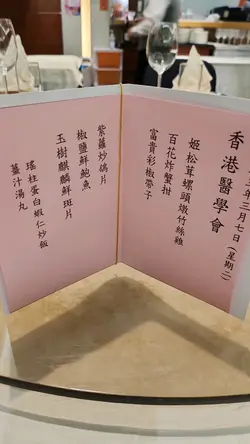 三年三月七日（星期二）
香港醫學會
富貴彩椒帶子
百花炸蟹拑
姬松茸螺頭燉竹絲雞
紫蘿炒鴿片
椒鹽鮮鮑魚
玉樹麒麟鮮斑片
瑤柱蛋白蝦仁炒飯
薑汁湯丸